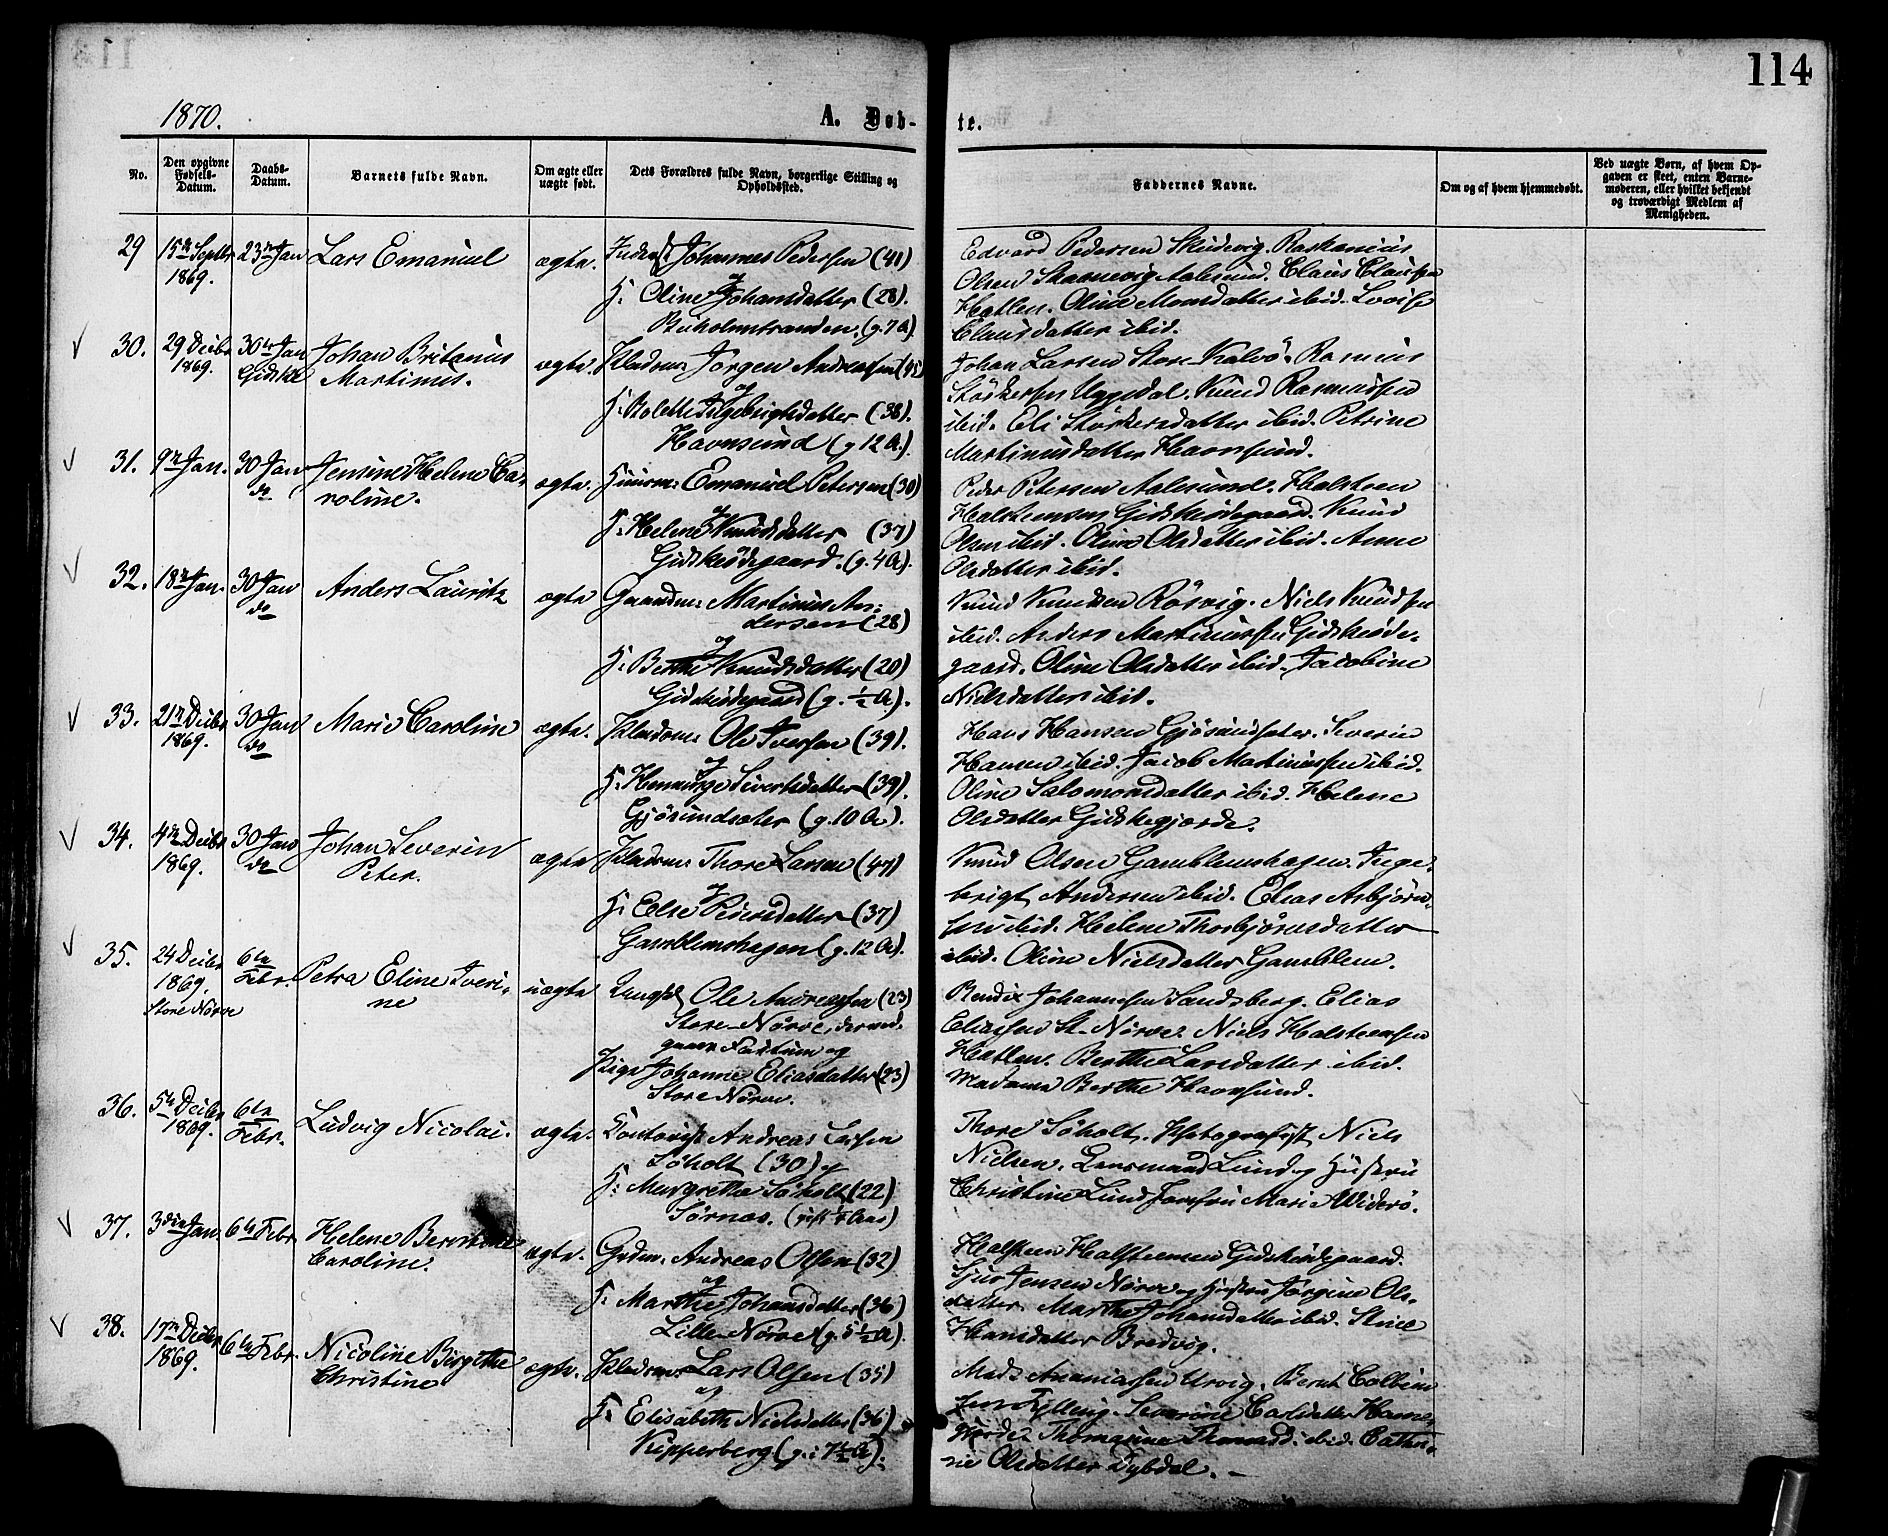 114
1870.
A. Døb-
te.
No.
Den opgivne Fødsels-Datum.
Daabs-Datum.
Barnets fulde Navn.
Om ægte eller uægte født.
Dets Forældres fulde Navn, borgerlige Stilling og Opholdssted.
Faddernes Navne.
Om og af hvem hjemmedøbt.
Ved uægte Børn, af hvem Op-
gaven er skeet, enten Barne-
moderen, eller hvilket bekjendt
og troværdigt Medlem af
Menigheden.
29 15de Septbr 23de Jan Lars Emanuel ægte. Johannes Pedersen (41)
1869. og
H: Oline Johansdatter (28).
Buholmstranden. (g. 7 A)
Edvard Pedersen Skudevig. Rasmus
Olsen Aalesund. Claus Claussen
Hatlen. Oline Monsdatter ibid. Lovise
Clausdatter ibid.
30. 29 Decbr 30te Jan Johan Britanius ægte. Pladsm: Jørgen Andreassen
1869. Gidske Martinus. og
H: Bolette Ingebrigtsdatter (38).
Havnsund (g 12 A).
Johan Larsen Store Kalvø. Rasmus
Størkersen Uggedal. Knud Rasmussen
ibid. Eli Størkersdatter ibid. Petrine
Martinusdatter Havnsund.
31. 9de Jan. 30 Jan Jensine Helene Ca- ægte. Huusm: Emanuel Petersen (30)
do roline. og
H: Helene Knudsdatter (37)
Gidskeødegaard. (g. 4 A).
Peder Petersen Aalesund. Halsteen
Halsteensen Gidskeødegaard. Knud
Olsen ibid. Oline Olsdatter ibid. Anne
Olsdatter ibid.
32. 18de Jan. 30 Jan Anders Lauritz ægte Gaardm: Martinus An-
do dersen (28)
og
H: Berthe Knudsdatter (20)
Gidskeødegaard (g. ½ A).
Knud Knudsen Røsvig. Niels Knudsen
ibid. Anders Martinussen Gidskeøde-
gaard. Oline Olsdatter ibid. Jacobine
Nielsdatter ibid.
33. 21de Decbr 30 Jan Marie Caroline ægte. Pladsm: Ole Iversen (39).
1869. do og
H: Sivertsdatter (39).
Gjøsundsæter (g. 10 A).
Hans Hansen Gjøsundsæter. Severin
Hansen ibid. Jacob Martinussen ibid.
Oline Salomonsdatter ibid. Helene
Olsdatter Gidskegjerde.
34. 4de Decbr 30 Jan Johan Severin ægte Pladsm: Thore Larsen (47)
1869. do Peter. og
H: Else Pedersdatter (37)
Gamblemshagen (g. 12 A).
Knud Olsen Gamblemshagen. Inge-
brigt Andersen ibid. Elias Asbjørn-
sen ibid. Helene Thorbjørnsdatter
ibid. Oline Nielsdatter Gamblem.
35. 24 Decbr 6te Petra Eline Iveri- uægte Ungk. Ole Andreassen (23)
1869. Febr. ne Store-Nørve,
Store Nørve og
Pige Johanne Eliasdatter (23)
Store Nørve.
Bendix Johannesen Sandsberg. Elias
Eliassen St. Nørve. Niels Halsteensen
Hatlen. Berthe Larsdatter ibid.
Madame Berthe Havnsund.
36. 5te Decbr 6te Ludvig Nicolai. ægte. Contorist Andreas
1869. Febr. Søholt (30) og
H: Margrethe Søholt (22)
Sørnæs.
Thore Søholt. Photografist Niels
Nielsen. Lensmand Lund og Hustru
Christine Lund. Jomfru Marie Widerø.
37. 3die Jan. 6te Febr. Helene ægte. Grdm. Andreas Olsen (32)
Caroline. og
H: Marthe Johansdatter (36)
Lille-Nørve (g. 5½ A).
Halsteen Halsteensen Gidskeødegaard.
Sjur Jensen Nørve og Hustru Jørgine Ols-
datter. Marthe Johansdatter ibid. Stine
Hansdatter Bredvig.
38. 17de Decbr 6te Febr. Nicoline Birgithe ægte. Pladsm. Lars Olsen (35)
1869. Christine og
H: Elisabeth Nielsdatter (36)
Kipperberg (g: 7½ A).
Mads Ananiassen Urvig. Bernt Colbein-
sen Fylling. Severine Carlsdatter
Thomasine ibid. Cathri-
ne Olsdatter Dybdal.